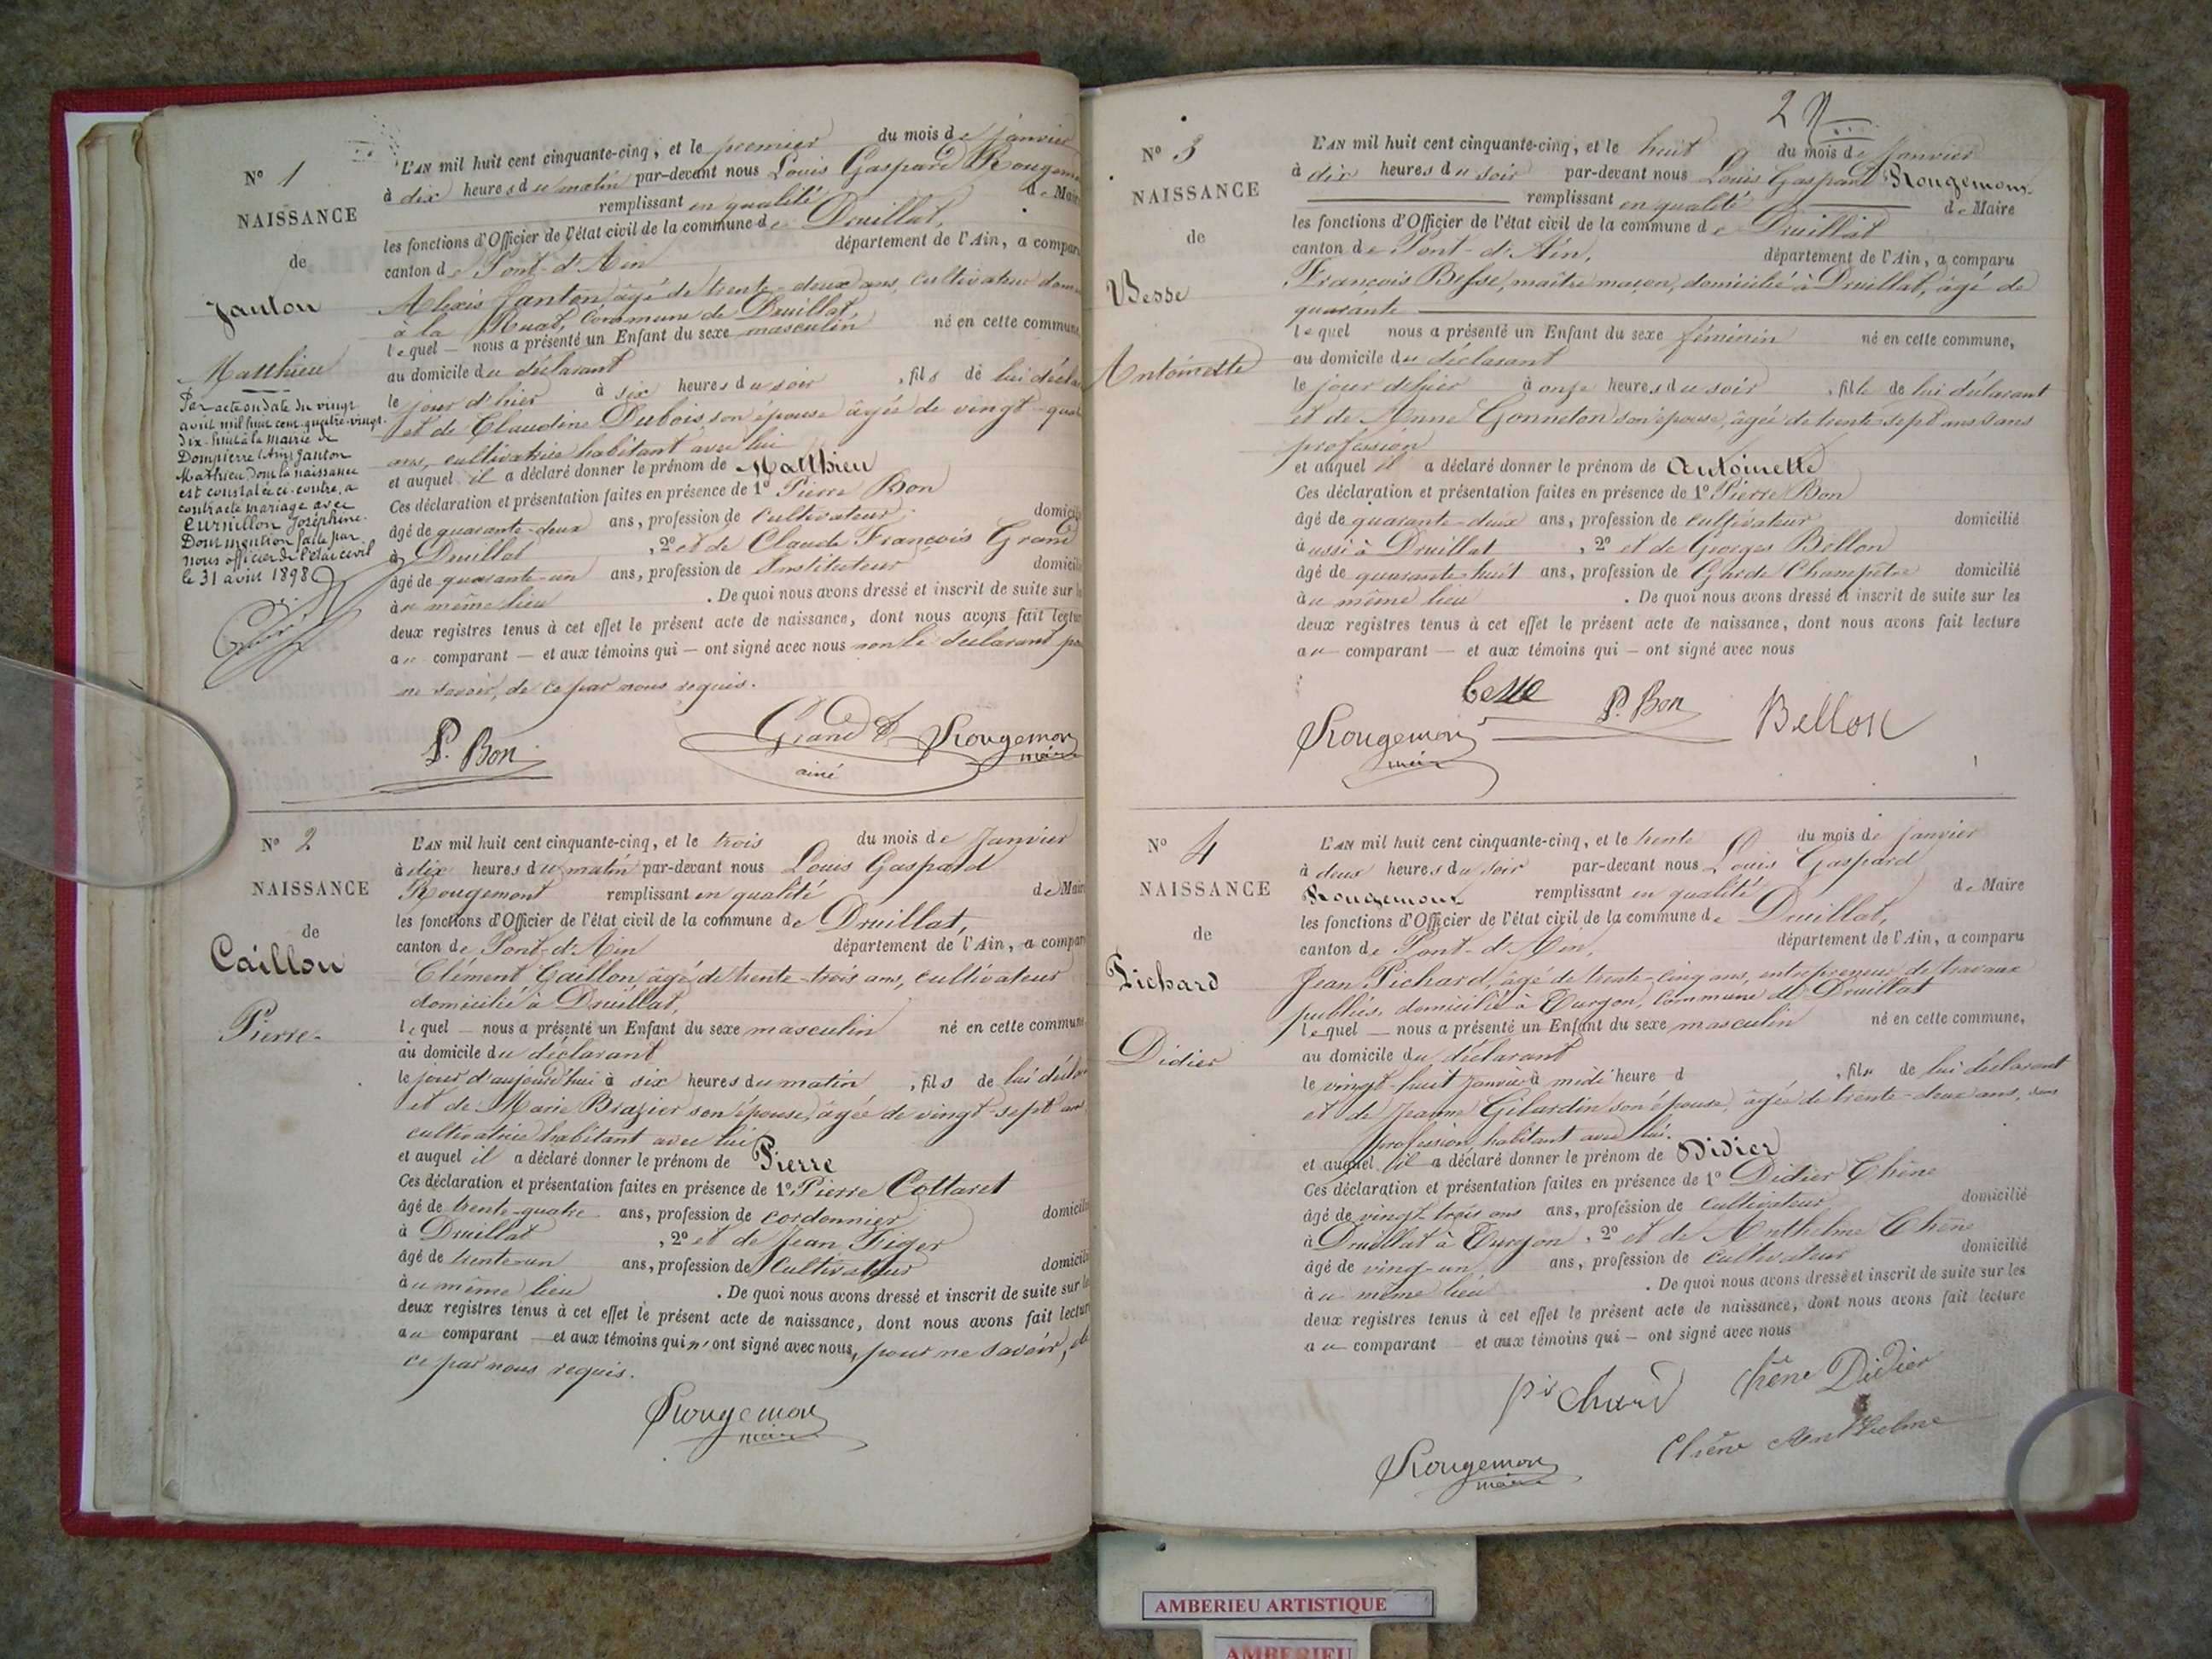 N° 1
NAISSANCE
de
Janton
Matthieu
Par acte en date du vingt
avril mil huit cent quatre-vingt-
dix-huit à la mairie de
Dompierre (Ain) Janton
Mathieu dont la naissance
est constatée ci-contre, a
contracté mariage avec
Curnillon Joséphine.
Dont mention faite par
nous officier de l'état civil
le 31 avril 1898
L'AN mil huit cent cinquante-cinq, et le premier du mois de Janvier
à dix heures du matin par-devant nous Louis Gaspard Rougemo
remplissant en qualité de Maire
les fonctions d'Officier de l'état civil de la commune de Druillat,
canton de Pont-d'Ain département de l'Ain, a compar
Alexis Janton, âgé de trente-deux ans, cultivateur dom
à la Ruat, commune de Druillat,
lequel — nous a présenté un Enfant du sexe masculin né en cette commune,
au domicile du déclarant
le jour d'hier à six heures du soir , fils de lui décla
et de Claudine Dubois son épouse âgée de vingt-quat
ans, cultivatrice habitant avec lui
et auquel il a déclaré donner le prénom de Matthieu
Ces déclaration et présentation faites en présence de 1° Pierre Bon
âgé de quarante-deux ans, profession de cultivateur domicili
à Druillat , 2° et de Claude François Grand
âgé de quarante-un ans, profession de Instituteur domicili
au même lieu . De quoi nous avons dressé et inscrit de suite sur l
deux registres tenus à cet effet le présent acte de naissance, dont nous avons fait lectur
au comparant — et aux témoins qui — ont signé avec nous non le déclarant po
ne savoir, de ce par nous requis.
P. Bon Grand Rougemon
ainé maire
N° 2
NAISSANCE
de
Caillon
Pierre.
L'AN mil huit cent cinquante-cinq, et le trois du mois de Janvier
à dix heures du matin par-devant nous Louis Gaspard
Rougemont remplissant en qualité de Mair
les fonctions d'Officier de l'état civil de la commune de Druillat,
canton de Pont-d'Ain département de l'Ain, a compar
Clément Caillon, âgé de trente-trois ans, cultivateur
domicilié à Druillat,
lequel — nous a présenté un Enfant du sexe masculin né en cette commune
au domicile du déclarant
le jour d'aujourd'hui à six heures du matin , fils de lui décla
et de Marie Brazier son épouse, âgée de vingt-sept ans
cultivatrice habitant avec lui
et auquel il a déclaré donner le prénom de Pierre
Ces déclaration et présentation faites en présence de 1° Pierre Cottaret
âgé de trente-quatre ans, profession de cordonnier domicili
à Druillat , 2° et de Jean Figer
âgé de trente-un ans, profession de Cultivateur domicili
au même lieu . De quoi nous avons dressé et inscrit de suite sur le
deux registres tenus à cet effet le présent acte de naissance, dont nous avons fait lectur
au comparant — et aux témoins qui n'ont signé avec nous, pour ne savoir, de
ce par nous requis.
Rougemon
maire
2
N° 3
NAISSANCE
de
Besse
Antoinette
L'AN mil huit cent cinquante-cinq, et le huit du mois de Janvier
à dix heures du soir par-devant nous Louis Gaspard Rougemont
remplissant en qualité de Maire
les fonctions d'Officier de l'état civil de la commune de Druillat
canton de Pont-d'Ain, département de l'Ain, a comparu
François Besse, maître maçon, domicilié à Druillat, âgé de
quarante
lequel nous a présenté un Enfant du sexe féminin né en cette commune,
au domicile du déclarant
le jour d'hier à onze heures du soir , fille de lui déclarant
et de Anne Gonneton son épouse, âgée de trente-sept ans sans
profession
et auquel il a déclaré donner le prénom de Antoinette
Ces déclaration et présentation faites en présence de 1° Pierre Bon
âgé de quarante-deux ans, profession de cultivateur domicilié
à ussi à Druillat , 2° et de Georges Bellon
âgé de quarante-huit ans, profession de Garde Champêtre domicilié
au même lieu . De quoi nous avons dressé et inscrit de suite sur les
deux registres tenus à cet effet le présent acte de naissance, dont nous avons fait lecture
au comparant — et aux témoins qui — ont signé avec nous
besse P. Bon Bellon
Rougemon
maire
N° 4
NAISSANCE
de
Pichard
Didier
L'AN mil huit cent cinquante-cinq, et le trente du mois de Janvier
à deux heures du soir par-devant nous Louis Gaspard
Rougemont remplissant en qualité de Maire
les fonctions d'Officier de l'état civil de la commune de Druillat,
canton de Pont-d'Ain, département de l'Ain, a comparu
Jean Pichard, âgé de trente-cinq ans, entrepreneur de travaux
publics, domicilié à Turgon, commune de Druillat
lequel — nous a présenté un Enfant du sexe masculin né en cette commune,
au domicile du déclarant
le vingt-huit Janvier à midi heure d , fils de lui déclarant
et de Jeanne Gilardin son épouse, âgée de trente-deux ans, sans
profession habitant avec lui.
et auquel il a déclaré donner le prénom de Didier
Ces déclaration et présentation faites en présence de 1° Didier Chêne
âgé de vingt-trois ans ans, profession de cultivateur domicilié
à Druillat à Turgon , 2° et de Anthelme Chêne
âgé de vingt-un ans, profession de Cultivateur domicilié
au même lieu . De quoi nous avons dressé et inscrit de suite sur les
deux registres tenus à cet effet le présent acte de naissance, dont nous avons fait lecture
au comparant — et aux témoins qui — ont signé avec nous
pichard Chêne Didier
Rougemon Chêne Anthelme
maire
AMBERIEU ARTISTIQUE
AMBERIEU